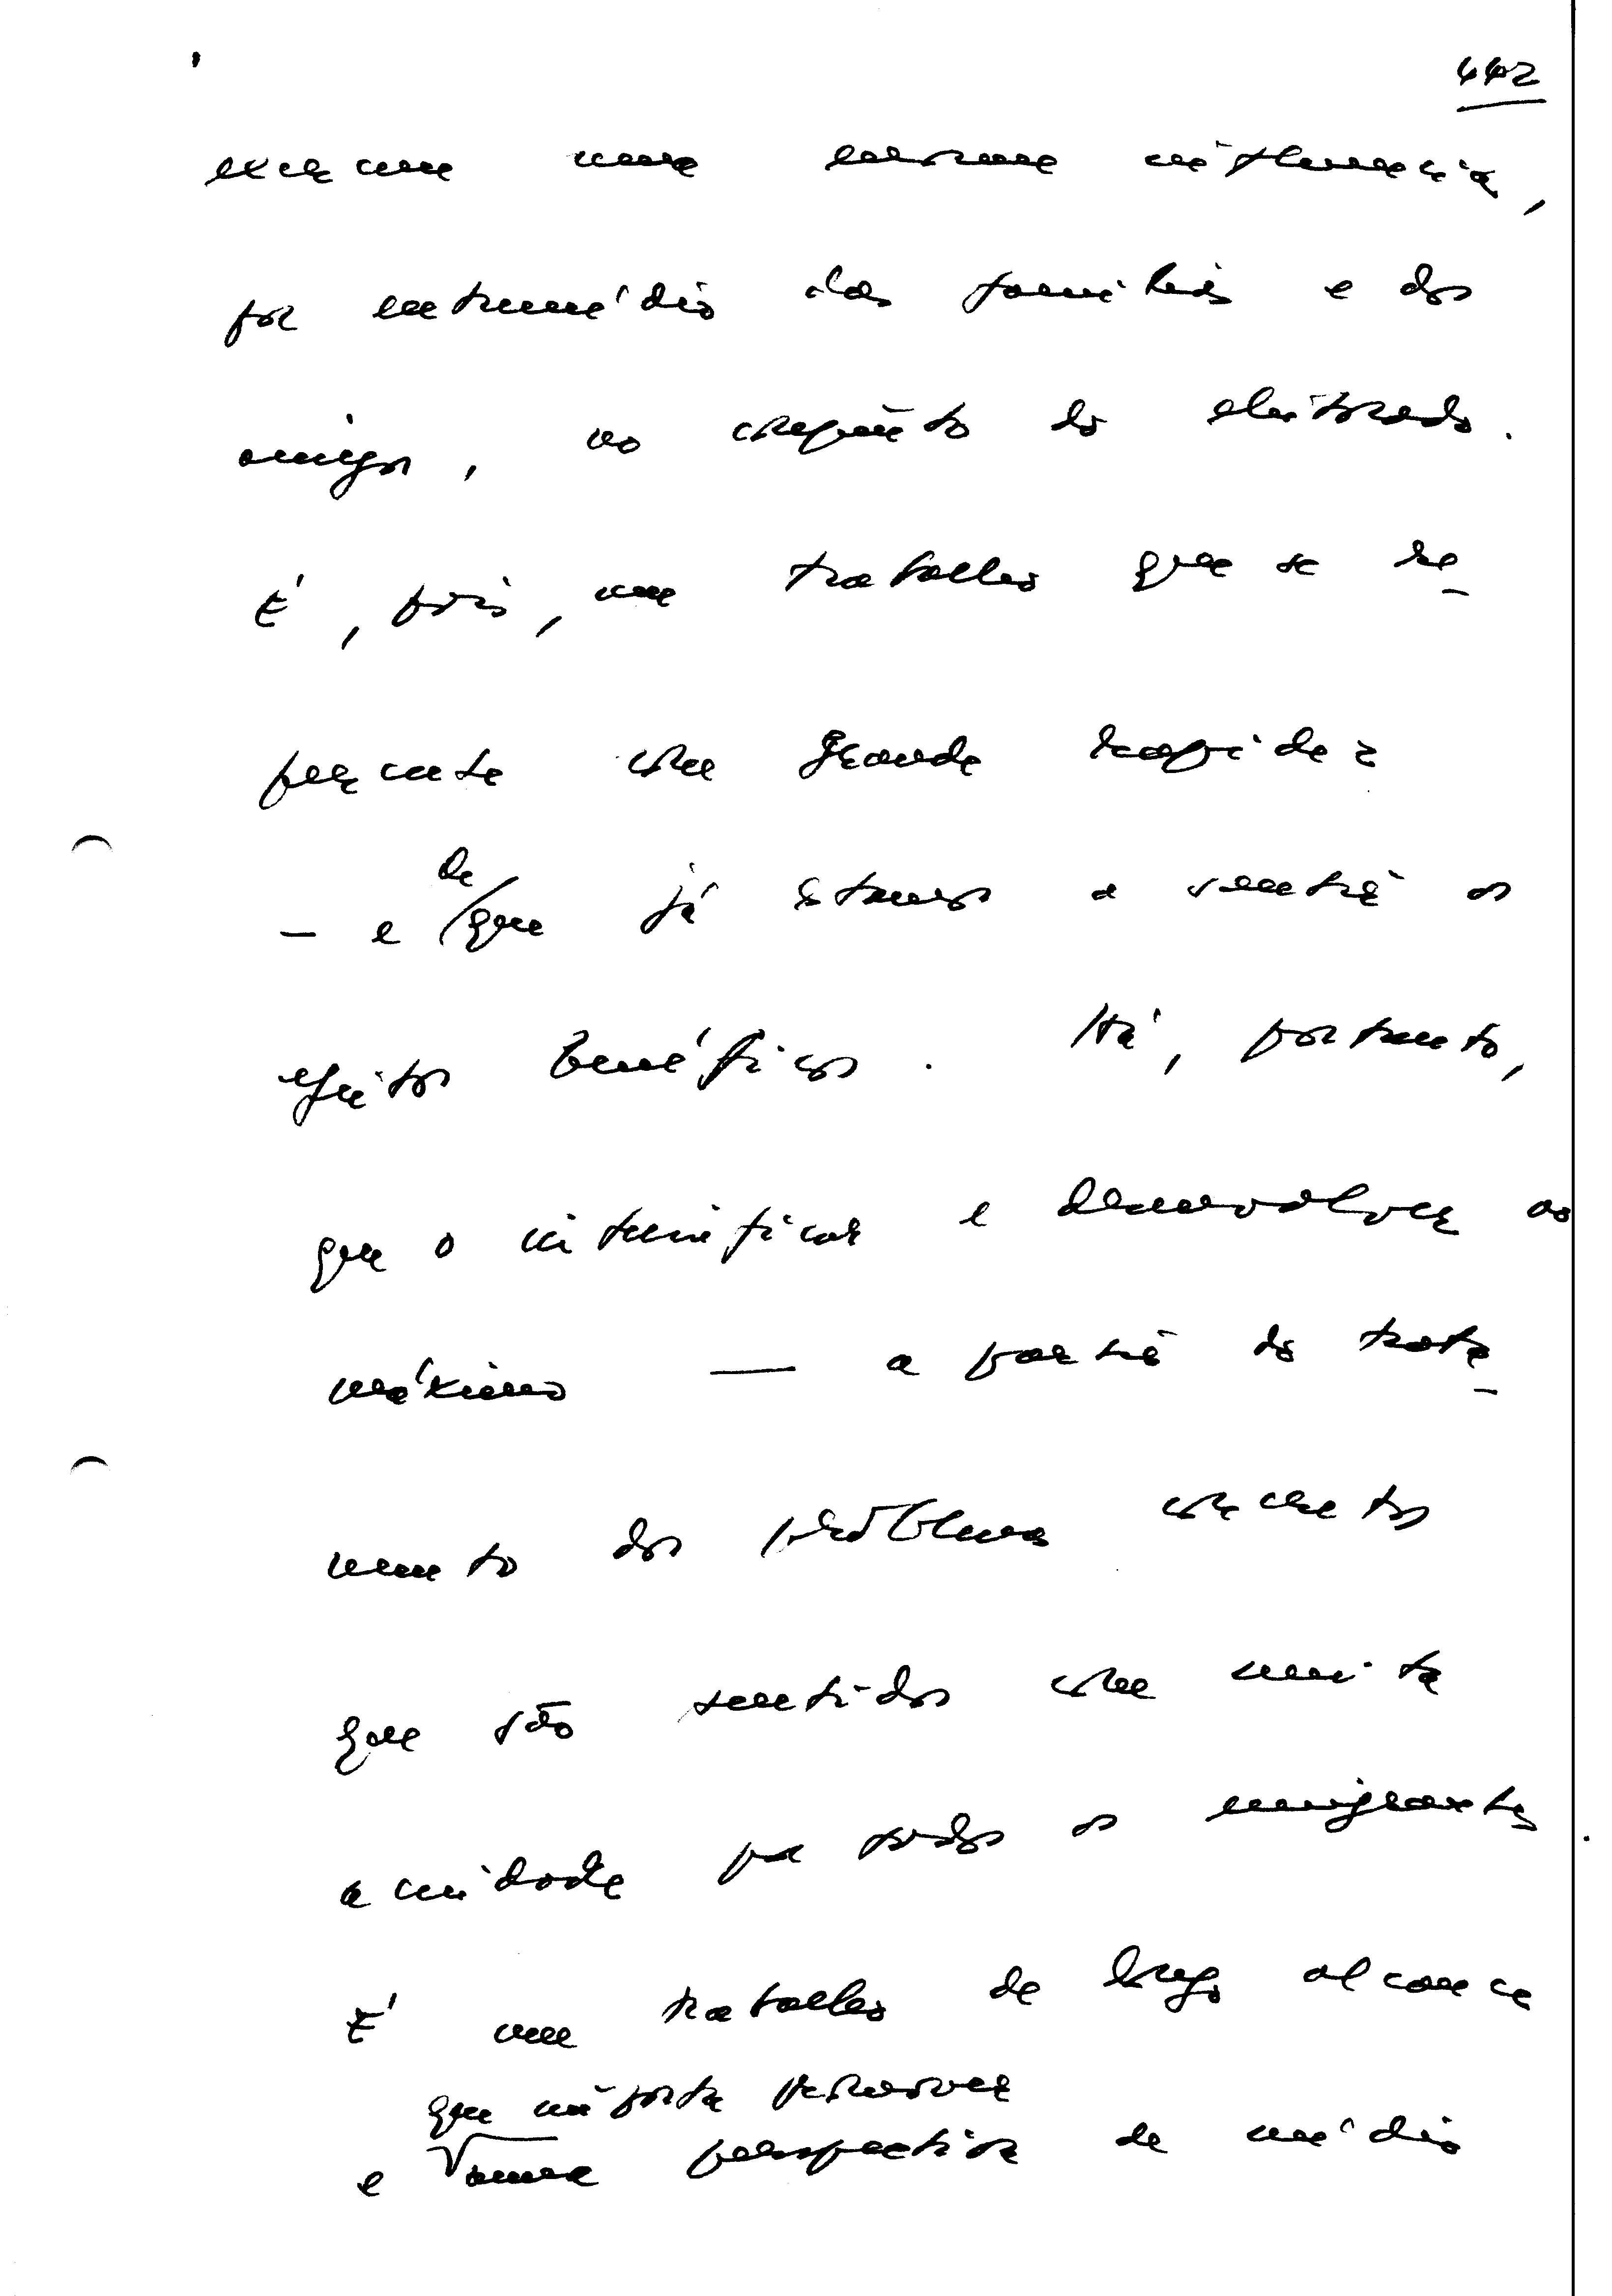 442
exercem uma enorme influência,
por intermédio das famílias e dos
amigos, no conjunto do eleitorado.
É, pois, um trabalho que se re-
percute com grande rapidez
de
– e que já estamos a sentir os
efeitos benéficos. Há, portanto,
que o intensificar e desenvolver ao
máximo — a partir do trata-
mento dos problemas concretos
que são sentidos com muita
acuidade por todos os emigrantes.
É um trabalho de longo alcance
que importa promover
e numa perspectiva de médio